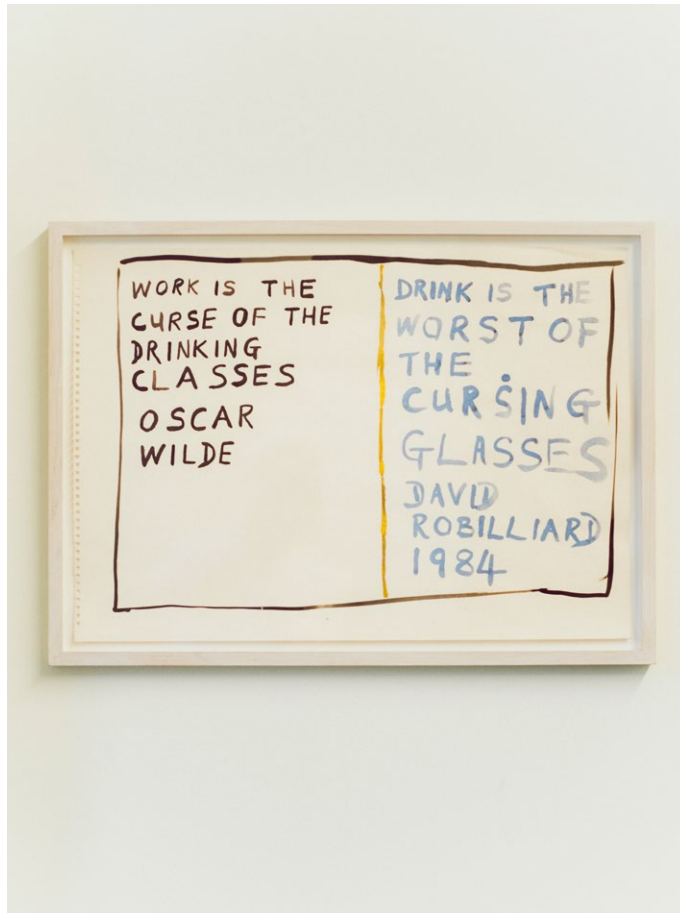 WORK IS THE
CURSE OF THE
DRINKING
CLASSES
OSCAR
WILDE
DRINK IS THE
WORST OF
THE
CURSING
GLASSES
DAVID
ROBILLIARD
1984